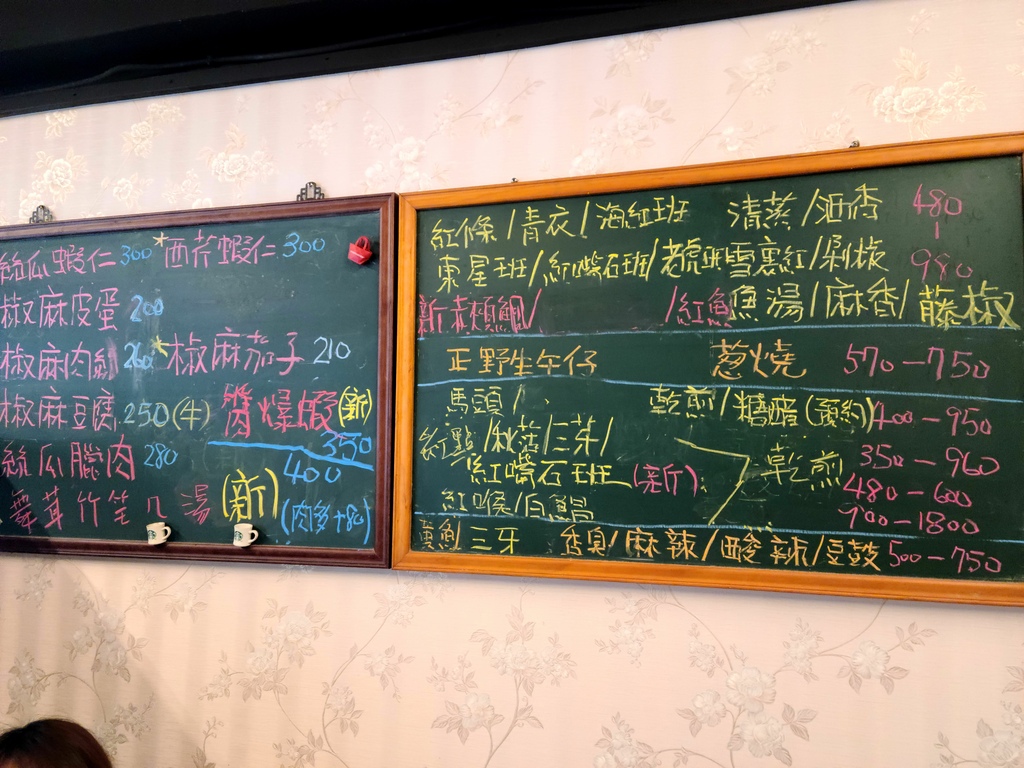 絲瓜蝦仁 300 *西芹蝦仁 300
椒麻皮蛋 200
椒麻肉魚 260 *椒麻茄子 210
椒麻豆腐 250(牛) 醬爆蝦(新) 350
絲瓜臘肉 280
舞茸竹笙 湯 (新) 400 (肉多+80)
紅條/青衣/海紅班 清蒸/酒香 480
東星班/紅嘴石班/老虎班 雪裏紅/剁椒 980
新 赤頰鯛/ /紅魚 魚湯/麻香/藤椒
正野生午仔 蔥燒 570-750
馬頭/ 乾煎/糖醋(預約) 400-950
紅點/秋姑/三芽/ 350-960
紅嘴石班(新) 乾煎 480-600
紅喉/白鯧 900-1800
三牙 香/麻辣/酸辣/豆鼓 500-750